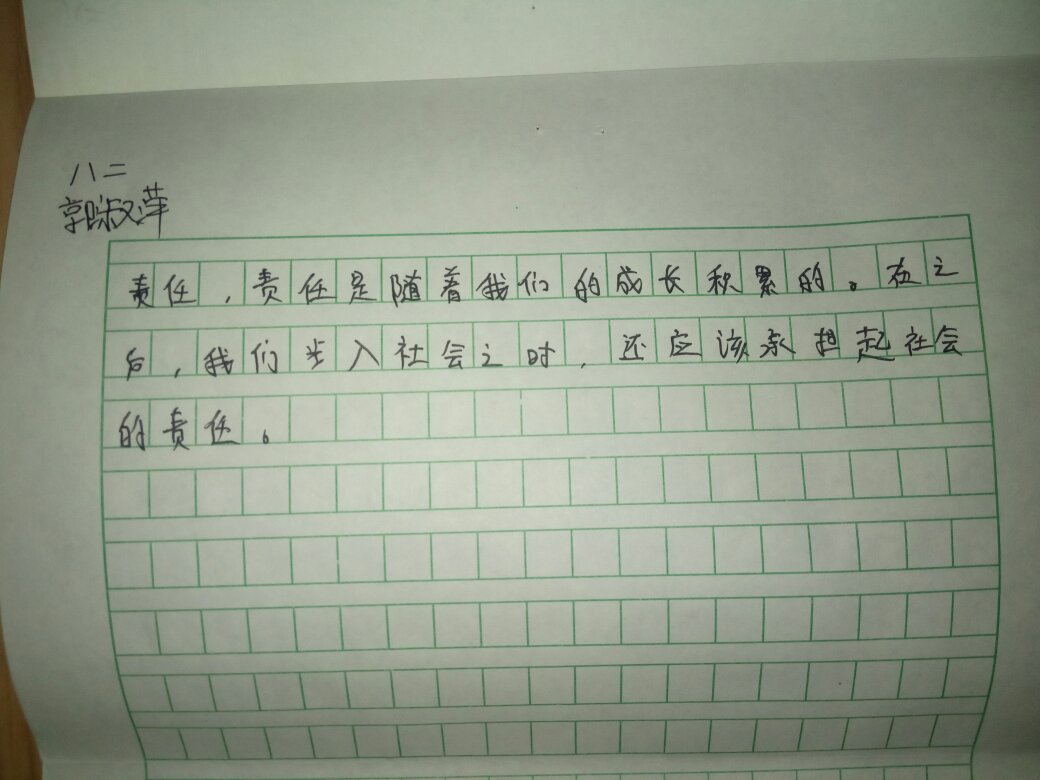 八二
郭淑萍
责任，责任是随着我们的成长积累的。在之
后，我们步入社会之时，还应该承担起社会
的责任。